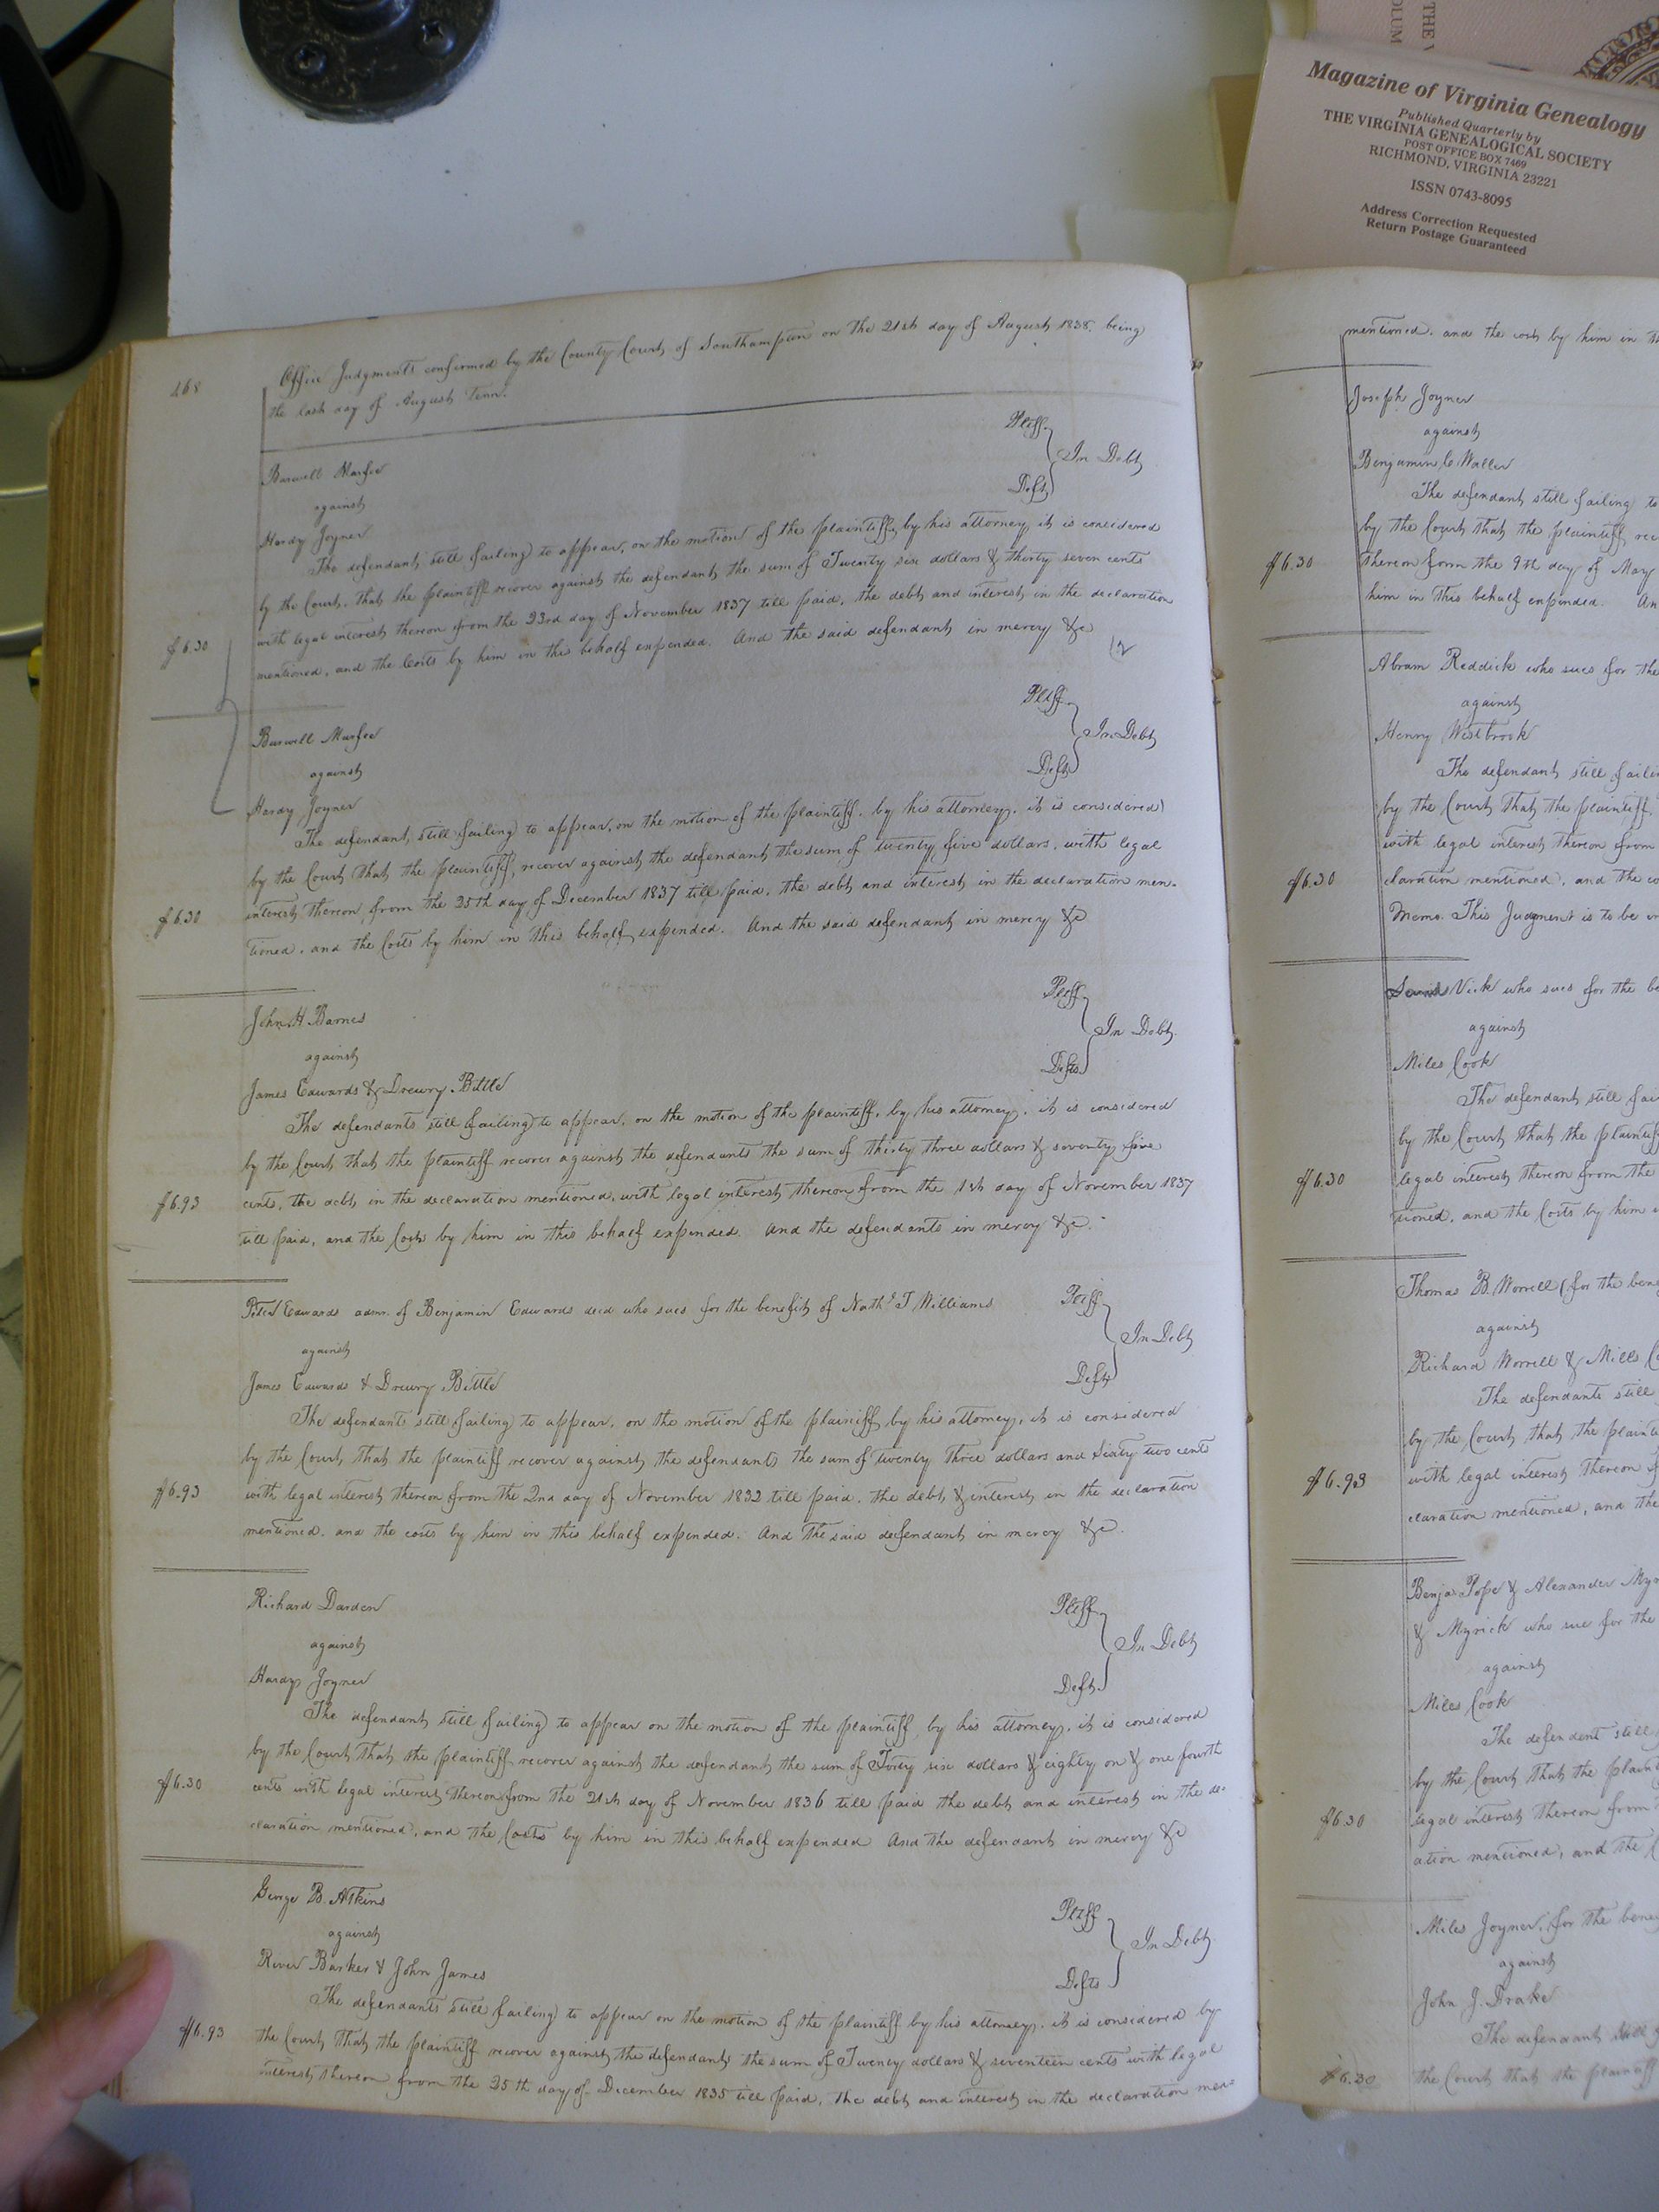 THE V
OLUM
Magazine of Virginia Genealogy
Published Quarterly by
THE VIRGINIA GENEALOGICAL SOCIETY
POST OFFICE BOX 7469
RICHMOND, VIRGINIA 23221
ISSN 0743-8095
Address Correction Requested
Return Postage Guaranteed
468
Office Judgments confirmed by the County Court of Southampton on the 21st day of August 1838, being
the last day of August Term.
Burwell Murfee Plff
against In Debt
Hardy Joyner Deft
The defendant still failing to appear, on the motion of the plaintiff, by his attorney, it is considered
by the Court, that the plaintiff recover against the defendant the sum of Twenty six dollars & thirty seven cents
with legal interest thereon from the 23rd day of November 1837 till paid, the debt and interest in the declaration
$6.30 mentioned, and the Costs by him in this behalf expended. And the said defendant in mercy &c
Burwell Murfee Plff
against In Debt
Hardy Joyner Deft
The defendant, still failing to appear, on the motion of the plaintiff, by his attorney, it is considered
by the Court that the plaintiff, recover against the defendant the sum of twenty five dollars, with legal
interest thereon from the 25th day of December 1837 till paid, the debt and interest in the declaration men-
$6.30 tioned, and the Costs by him in this behalf expended. And the said defendant in mercy &c
John H Barnes Plff
against In Debt.
James Edwards & Drewry Bittle Defts
The defendants still failing to appear, on the motion of the plaintiff, by his attorney, it is considered
by the Court, that the plaintiff recover against the defendants the sum of thirty three dollars & seventy five
$6.93 cents, the debt in the declaration mentioned, with legal interest thereon from the 1st day of November 1837
till paid, and the Costs by him in this behalf expended. And the defendants in mercy &c.
Peter Edwards admr. of Benjamin Edwards decd who sues for the benefit of Nathl T Williams Plff
against In Debt
James Edwards & Drewry Bittle Defts
The defendants still failing to appear, on the motion of the plaintiff by his attorney, it is considered
by the Court, that the plaintiff recover against the defendants the sum of twenty three dollars and Sixty two cents
$6.93 with legal interest thereon from the 2nd day of November 1832 till paid, the debt & interest in the declaration
mentioned, and the costs by him in this behalf expended. And the said defendant in mercy &c.
Richard Darden Plff
against In Debt
Hardy Joyner Deft.
The defendant still failing to appear on the motion of the plaintiff, by his attorney, it is considered
by the Court that the plaintiff recover against the defendant the sum of Forty six dollars & eighty on & one fourth
$6.30 cents with legal interest thereon from the 21st day of November 1836 till paid the debt and interest in the de-
claration mentioned, and the Costs by him in this behalf expended And the defendant in mercy &c
George B. Atkins Plff
against In Debt.
River Barker & John James Defts
The defendants still failing to appear on the motion of the plaintiff by his attorney, it is considered by
$6.93 the Court, that the plaintiff recover against the defendants the sum of Twenty dollars & seventeen cents with legal
interest thereon from the 25th day of December 1835 till paid, the debt and interest in the declaration men-
mentioned, and the costs by him in
Joseph Joyner
against
Benjamin C Waller
The defendant still failing to
by the Court that the plaintiff rec
$6.30 thereon from the 9th day of May
him in this behalf expended. An
Abram Reddick who sues for the
against
Henry Westbrook
The defendant still faili
by the Court that the plaintiff
with legal interest thereon from
$6.30 claration mentioned, and the co
Memo. This Judgment is to be
Vick who sues for the be
against
Miles Cook
The defendant still fai
by the Court that the plaintiff
$6.30 legal interest thereon from the
tioned, and the Costs by him
Thomas B. Worrell (for the bene
against
Richard Worrell & Mills
The defendants still
by the Court, that the plaint
$6.93 with legal interest thereon
claration mentioned, and the
Benja Pope & Alexander Myr
& Myrick who sue for the
against
Miles Cook
The defendent still
by the Court that the plaint
$6.30 legal interest thereon from
ation mentioned, and the
Miles Joyner, for the bene
against
John J. Drake
The defendant still
$6.30 the Court that the plaintiff